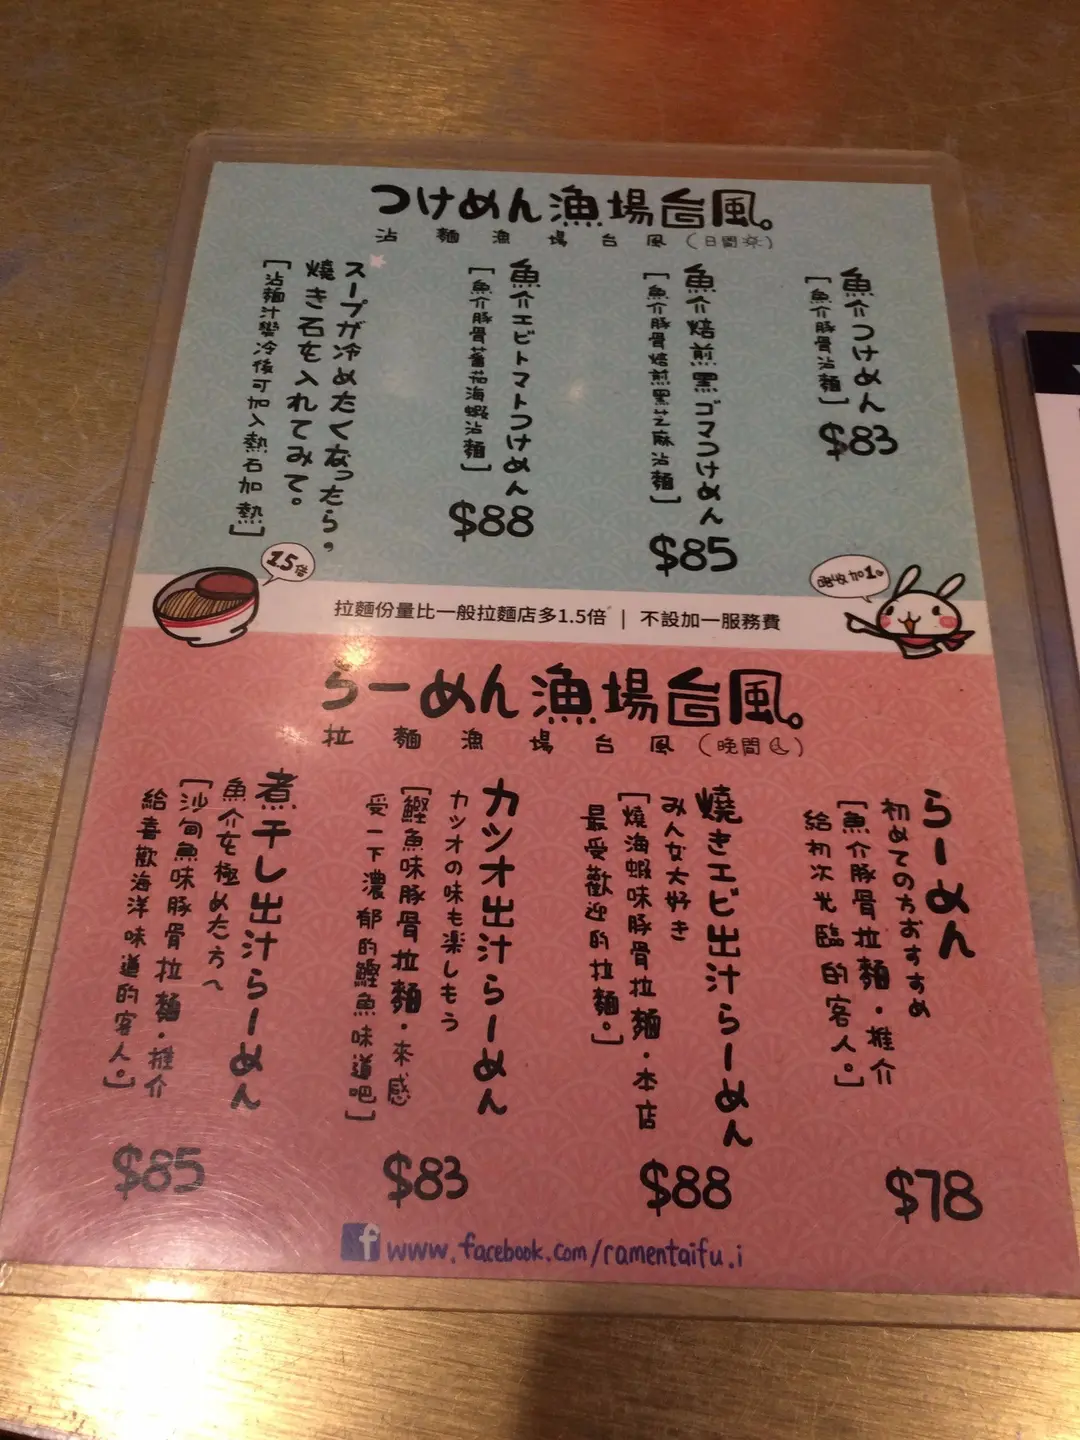 つけめん漁場台風。
沾麵漁場台風（日間）
魚介つけめん
［魚介豚骨沾麵］
$83
魚介焙煎黑ゴマつけめん
［魚介豚骨焙煎黑芝麻沾麵］
$85
魚介エビトマトつけめん
［魚介豚骨蕃茄海蝦沾麵］
$88
スープが冷めたくなったら。
燒き石を入れてみて。
［沾麵汁變冷後可加入熱石加熱］
1.5倍
拉麵份量比一般拉麵店多1.5倍 | 不設加一服務費
唔收加1。
らーめん漁場台風。
拉麵漁場台風（晚間）
らーめん
初めての方おすすめ
［魚介豚骨拉麵・推介
給初次光臨的客人。］
$78
燒きエビ出汁らーめん
みんな大好き
［燒海蝦味豚骨拉麵・本店
最受歡迎的拉麵。］
$88
カツオ出汁らーめん
カツオの味も楽しもう
［鰹魚味豚骨拉麵・來感
受一下濃郁的鰹魚味道吧］
$83
煮干し出汁らーめん
魚介を極めた方へ
［沙甸魚味豚骨拉麵・推介
給喜歡海洋味道的客人。］
$85
f www.facebook.com/ramentaifu.i